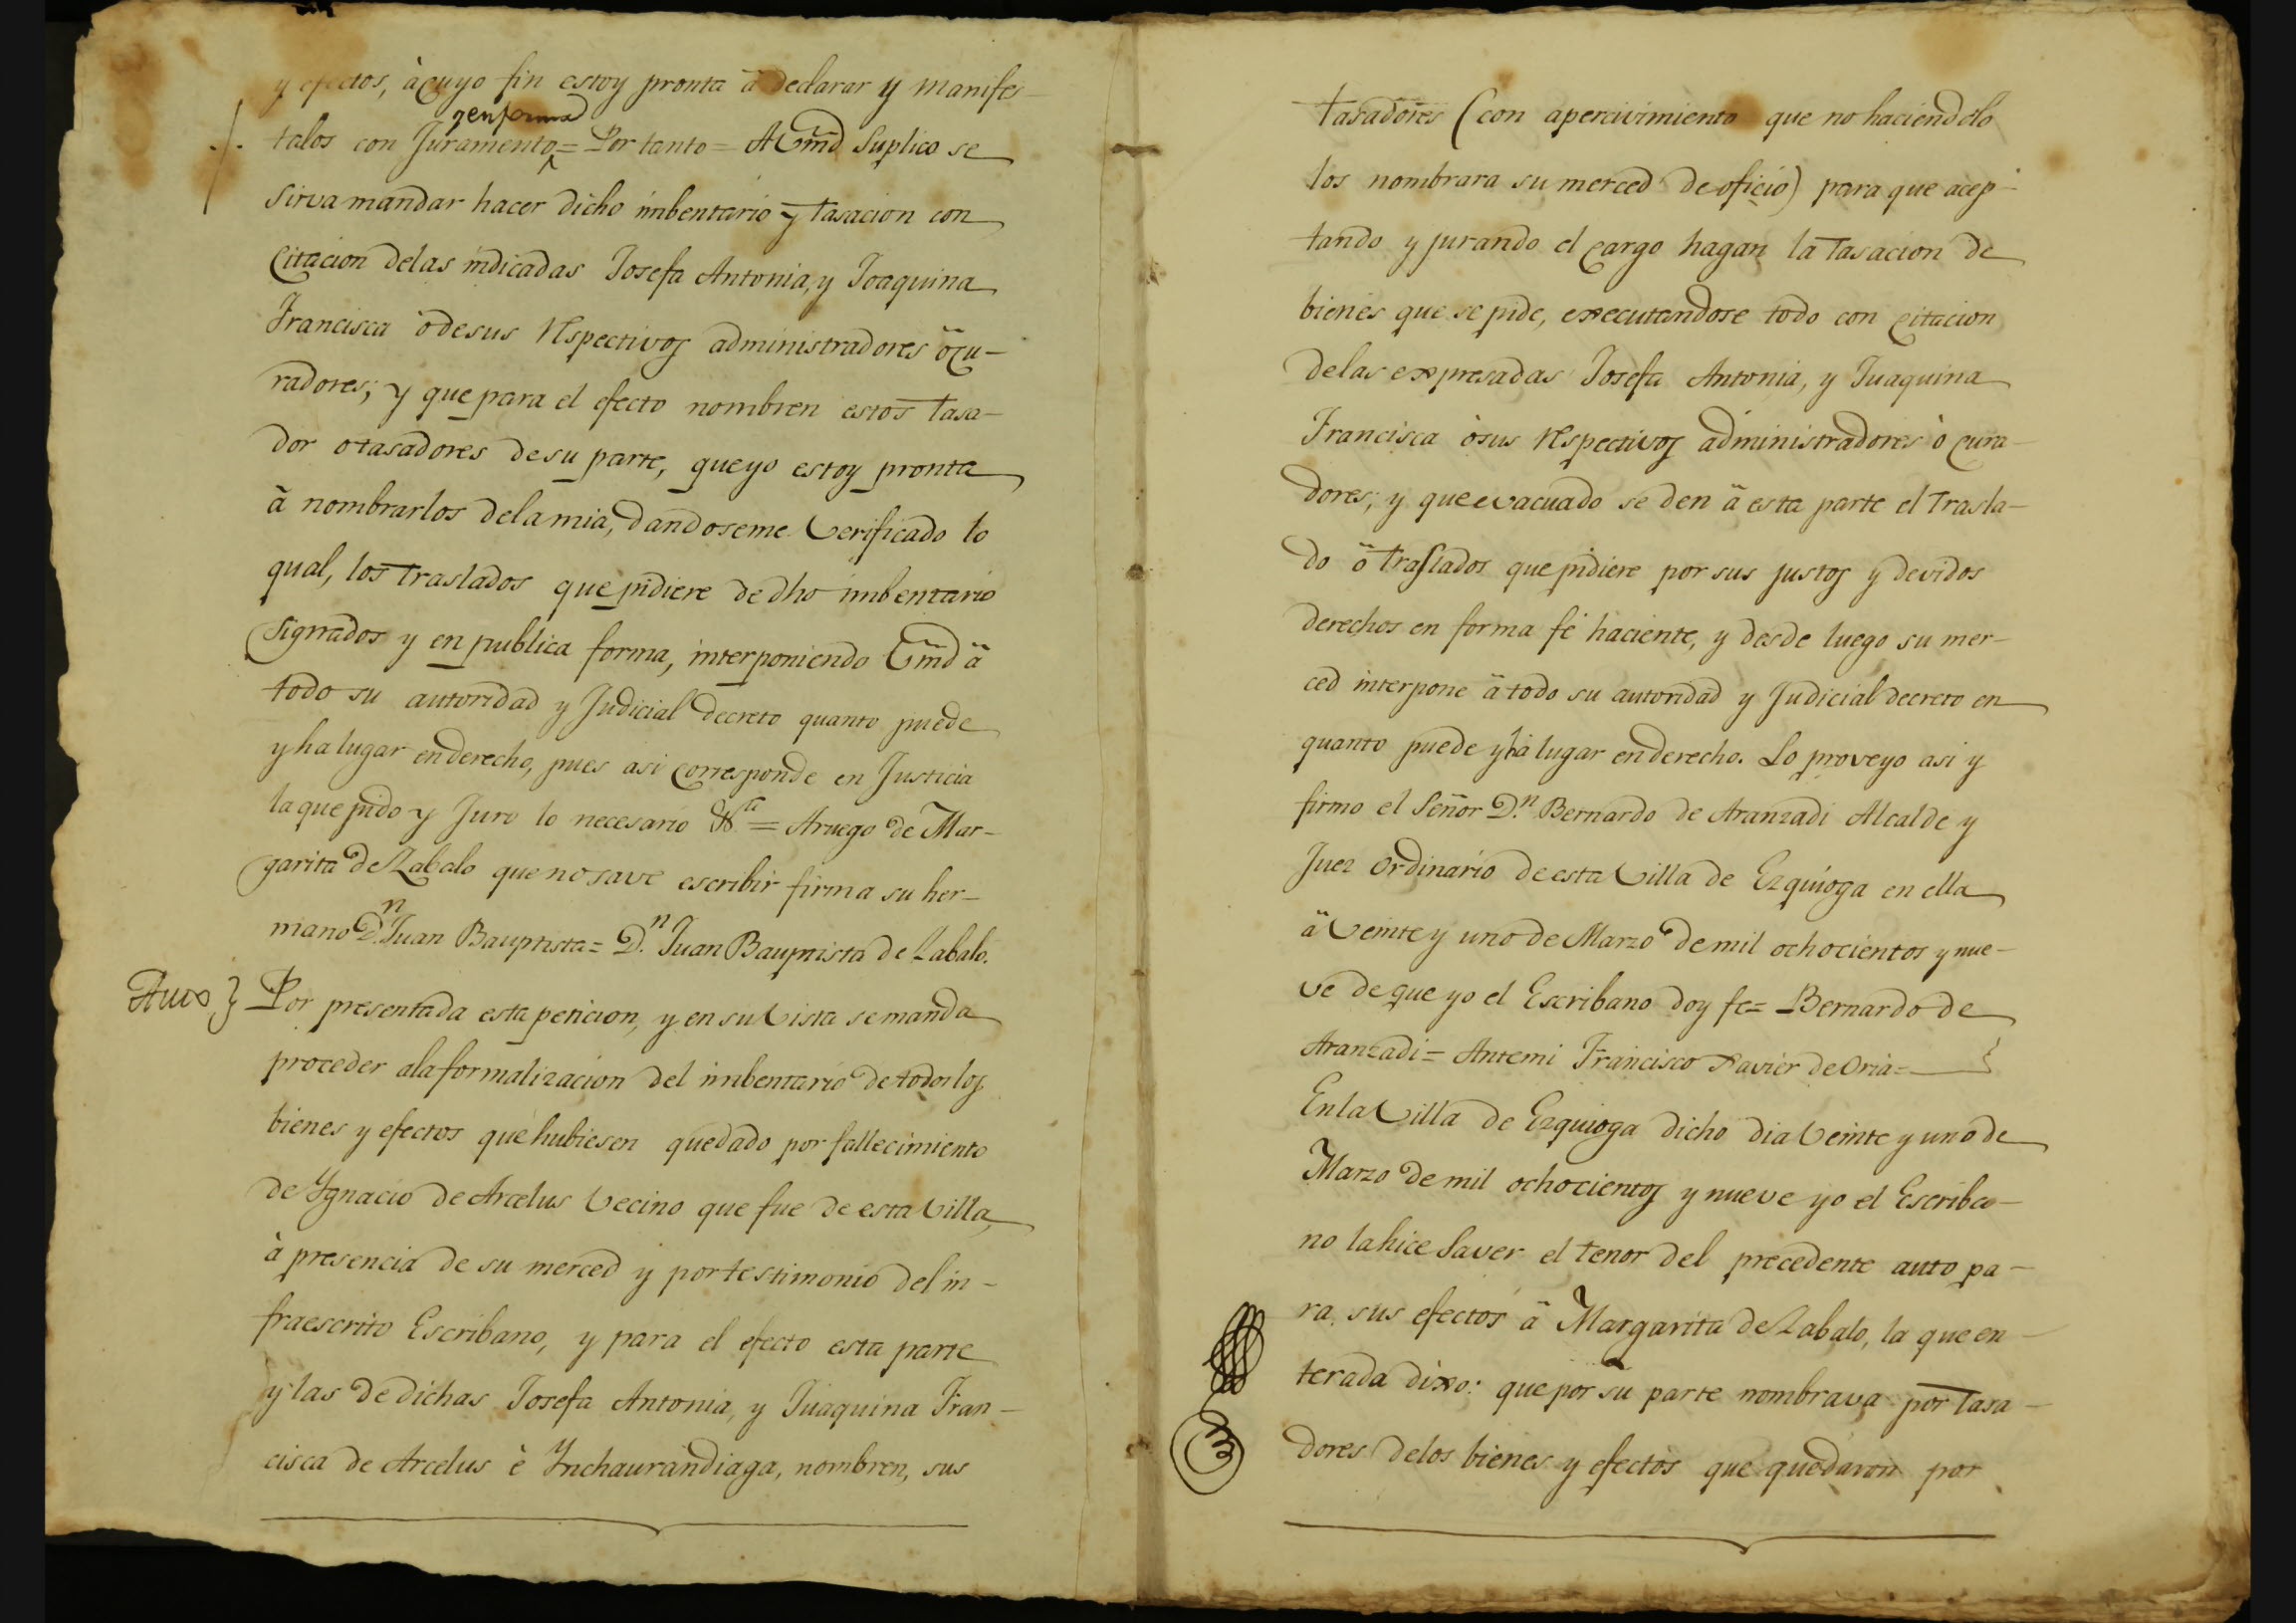 y efectos, à cuyo fin estoy pronta â declarar y manifes-
talos con Juramento y en forma = Por tanto = A Vmd Suplico se
sirva mandar hacer dicho imbentario y tasacion con
Citacion delas indicadas Josefa Antonia, y Joaquina
Francisca ò de sus respectivos administradores ö cu-
radores; y que para el efecto nombren estos tasa-
dor o tasadores de su parte, que yo estoy pronta
ä nombrarlos dela mia, dandoseme Verificado lo
qual, los traslados que pidiere de dho imbentario
Signados y en publica forma, interponiendo Vmd ä
todo su autoridad y Judicial decreto quanto puede
y ha lugar en derecho, pues asi corresponde en Justicia
la que pido y Juro lo necesario &ª = A ruego de Mar-
garita de Zabalo que no save escribir firma su her-
mano D.n Juan Bauptista = D.n Juan Bauptista de Zabalo.
Auto } Por presentada esta peticion, y en su Vista se manda
proceder ala formalizacion del imbentario de todos los
bienes y efectos que hubiesen quedado por fallecimiento
de Ygnacio de Arcelus Vecino que fue de esta Villa,
à presencia de su merced y por testimonio del in-
fraescrito Escribano, y para el efecto esta parte
y las de dichas Josefa Antonia, y Juaquina Fran-
cisca de Arcelus è Ynchaurandiaga, nombren, sus
tasadores (con apercivimiento que no haciendolo
los nombrara su merced de oficio) para que acep-
tando y jurando el cargo hagan la tasacion de
bienes que se pide, executandose todo con citacion
delas expresadas Josefa Antonia, y Juaquina
Francisca ò sus respectivos administradores ò cura-
dores; y que evacuado se den ä esta parte el trasla-
do ö traslados que pidiere por sus justos y devidos
derechos en forma fé haciente, y desde luego su mer-
ced interpone ä todo su autoridad y Judicial decreto en
quanto puede y hà lugar en derecho. Lo proveyo asi y
firmo el Señor D.n Bernardo de Aranzadi Alcalde y
Juez ordinario de esta Villa de Ezquioga en ella
ä Veinte y uno de Marzo de mil ochocientos y nue-
ve de que yo el Escribano doy fe = Bernardo de
Aranzadi = Antemi Francisco Xavier de Oria =
En la Villa de Ezquioga dicho dia Veinte y uno de
Marzo de mil ochocientos y nueve yo el Escriba-
no la hice saver el tenor del precedente auto pa-
ra sus efectos ä Margarita de Zabalo, la que en-
terada dixo: que por su parte nombrava por tasa-
dores delos bienes y efectos que quedaron por